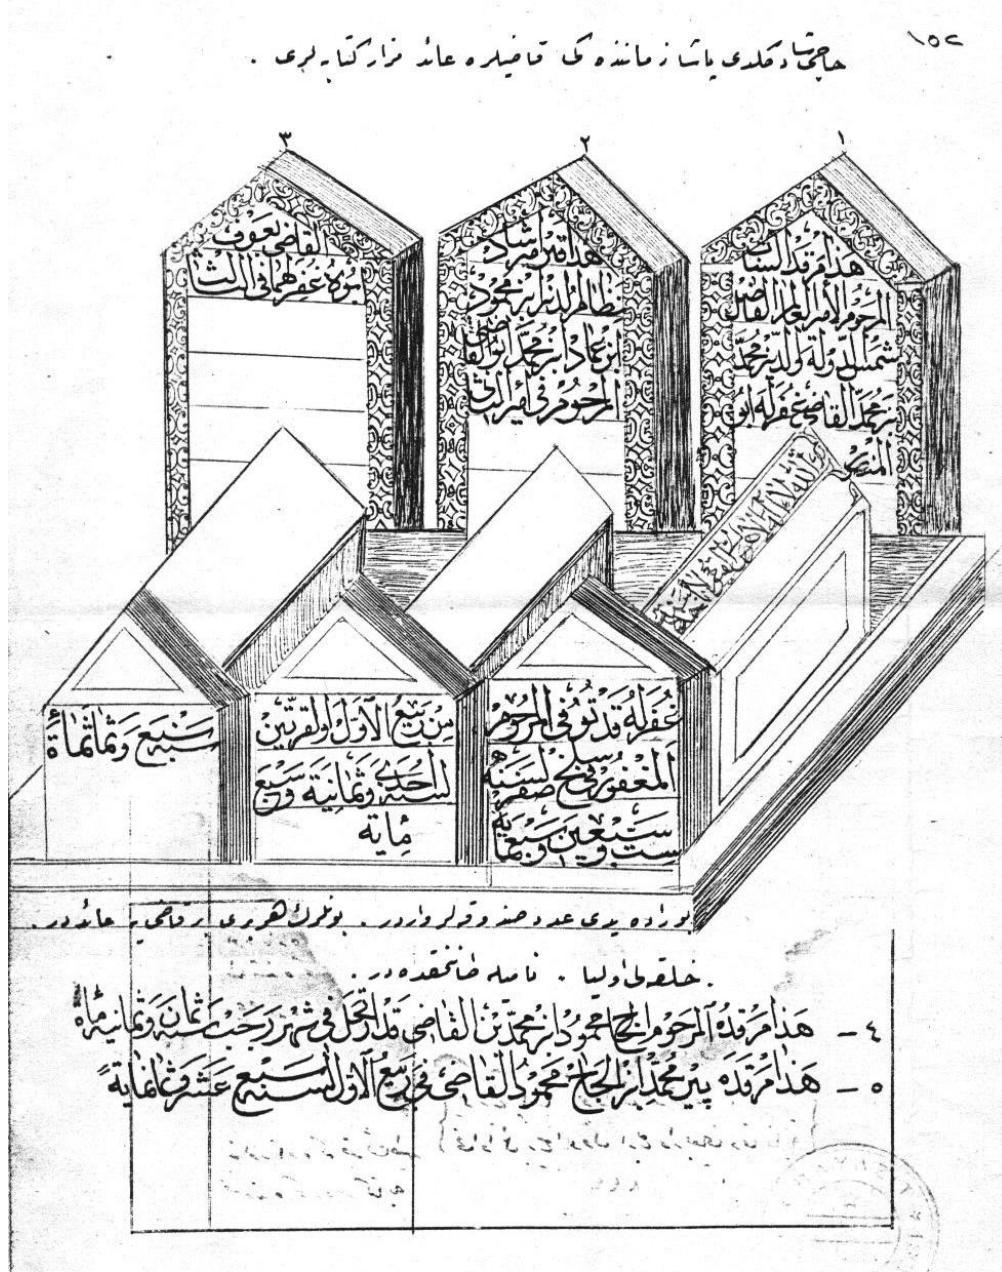 ١٥٢
حاجی شاد کلدی پاشا زماننده کی قاضیلره عائد مزار کتابه لری .
١
هذا مرقد الشاب
المرحوم الأمير العالم القاضي
شمس الدولة والدين محمد
بن محمد القاضي غفر له ابو
٢
هذا قبر امير شاد
نظام الدين ابن محمود
ابن عماد ابن محمد ابو القاضي
المرحوم في
٣
القاضي يعقوب
غفر هما في الثا
غفر له قد توفى المرحوم
المغفور في سلخ صفر لسنة
ست وسبعين وسبعماية
من ربيع الأول والقرتين
لسنة احدى وثمانية وسبع
ماية
سنة سبع وثمانماة
بوراده یدی عدد صندوقه لر واردر . بونلرك هر بری بر قاضی یه عائددر .
خلقه لی اولیا . نامیله طانمقده در .
٤ – هذا مرقده المرحوم الحاج محمود ابن محمد بن القاضي قد ارتحل في شهر رجب سنة ثمان وثمانية مأة
٥ – هذا مرقده پير محمد ابن الحاج محمود القاضي في ربيع الاول لسنة سبع عشر وثمانماية